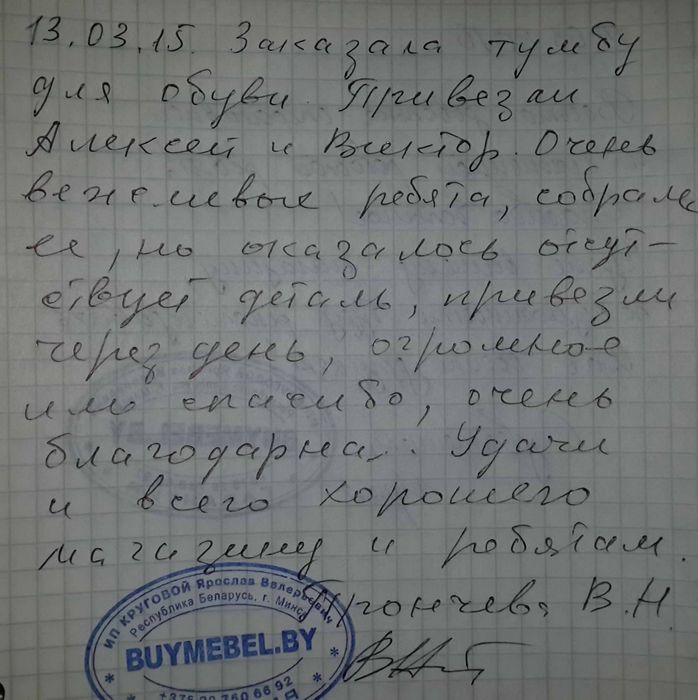 13.03.15. Заказала тумбу
для обуви. Привезли
Алексей и Виктор. Очень
вежливые ребята, собрали
ее, но оказалось отсут-
ствует деталь, привезли
через день, огромное
им спасибо, очень
благодарна. Удачи
и всего хорошего
магазину и ребятам.
В.Н.
ИП КРУГОВОЙ Ярослав Валерьевич
Республика Беларусь, г. Минск
BUYMEBEL.BY
760 66 92